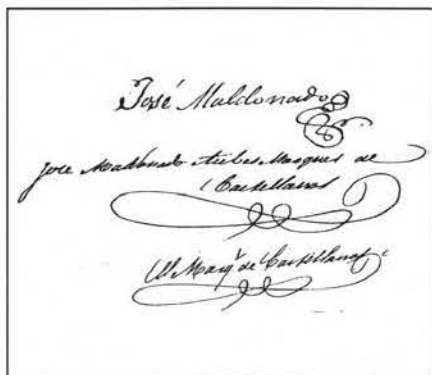 José Maldonado
Jose Maldonado Marques de
Castellanos
El Marq.s de Castellanos